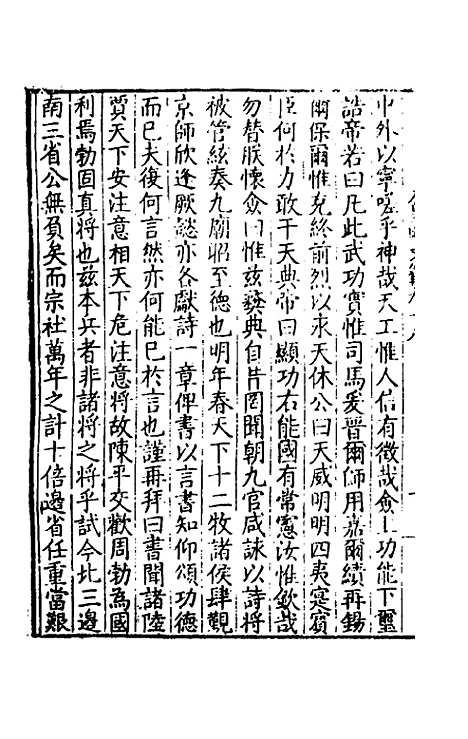 中外以寧嗟乎神哉天工惟人信有徵哉僉上功能下璽
誥帝若曰凡此武功實惟司馬爰晉爾師用嘉爾績再錫
爾保爾惟克終前烈以永天休公曰天威明明四夷寔賓
臣何於力敢干天典帝曰顯功右能國有常憲汝惟欽哉
勿替朕懷僉曰惟茲發典自昔罔聞朝九官咸詠以詩將
被管絃奏九廟昭至德也明年春天下十二牧諸侯肆覲
京師欣逢厥懿亦各獻詩一章俾書以言書知仰頌功德
而已夫復何言然亦何能已於言也謹再拜曰書聞諸陸
賈天下安注意相天下危注意將故陳平交歡周勃為國
利焉勃固真將也茲本兵者非諸將之將乎試今北三邊
南三省公無負矣而宗社萬年之計十倍邊省任重當艱